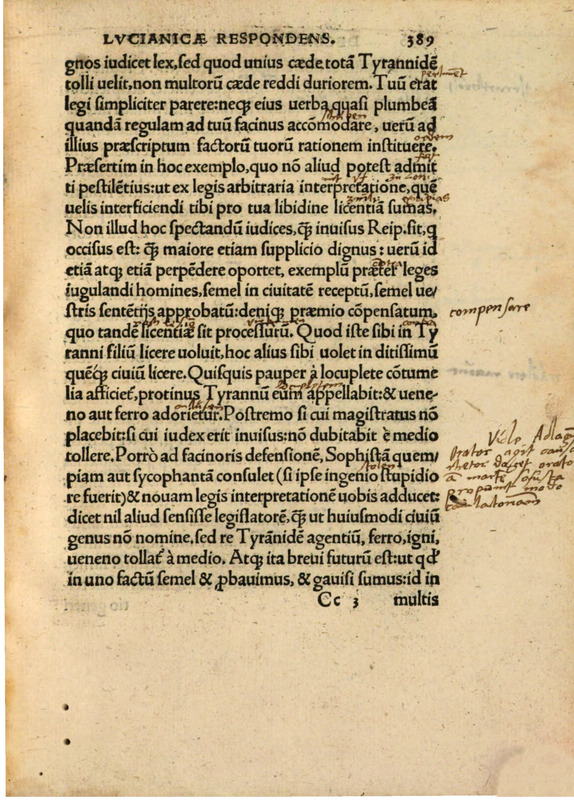 LVCIANICÆ RESPONDENS. 389
gnos iudicet lex, sed quod unius cæde totã Tyrannidẽ
tolli uelit, non multorũ cæde reddi duriorem. Tuũ erat
legi simpliciter parere: neq; eius uerba quasi plumbeã
quandã regulam ad tuũ facinus accõmodare, uerũ ad
illius præscriptum factorũ tuorũ rationem instituere.
Præsertim in hoc exemplo, quo nõ aliud potest admit
ti pestilẽtius: ut ex legis arbitraria interpretatione, quẽ
uelis interficiendi tibi pro tua libidine licentiã sumas.
Non illud hoc spectandũ iudices, q̃ꝫ inuisus Reip. sit, q
occisus est: q̃ꝫ maiore etiam supplicio dignus: uerũ id
etiã atq; etiã perpẽdere oportet, exemplũ præter leges
iugulandi homines, semel in ciuitatẽ receptũ, semel ue/
stris sentẽtijs approbatũ: deniq; præmio cõpensatum,
quo tandẽ licentiæ sit processurũ. Quod iste sibi in Ty
ranni filiũ licere uoluit, hoc alius sibi uolet in ditissimũ
quẽq; ciuiũ licere. Quisquis pauper à locuplete cõtume
lia afficiet, protinus Tyrannũ eum appellabit: & uene-
no aut ferro adorietur. Postremo si cui magistratus nõ
placebit: si cui iudex erit inuisus: nõ dubitabit è medio
tollere. Porrò ad facinoris defensionẽ, Sophistã quem/
piam aut sycophantã consulet (si ipse ingenio stupidio
re fuerit) & nouam legis interpretationẽ uobis adducet:
dicet nil aliud sensisse legislatorẽ, q̃ꝫ ut huiusmodi ciuiũ
genus nõ nomine, sed re Tyrãnidẽ agentiũ, ferro, igni,
ueneno tollat̃ à medio. Atq; ita breui futurũ est: ut qđ
in uno factũ semel & ꝓbauimus, & gauisi sumus: id in
Cc 3 multis
compensare